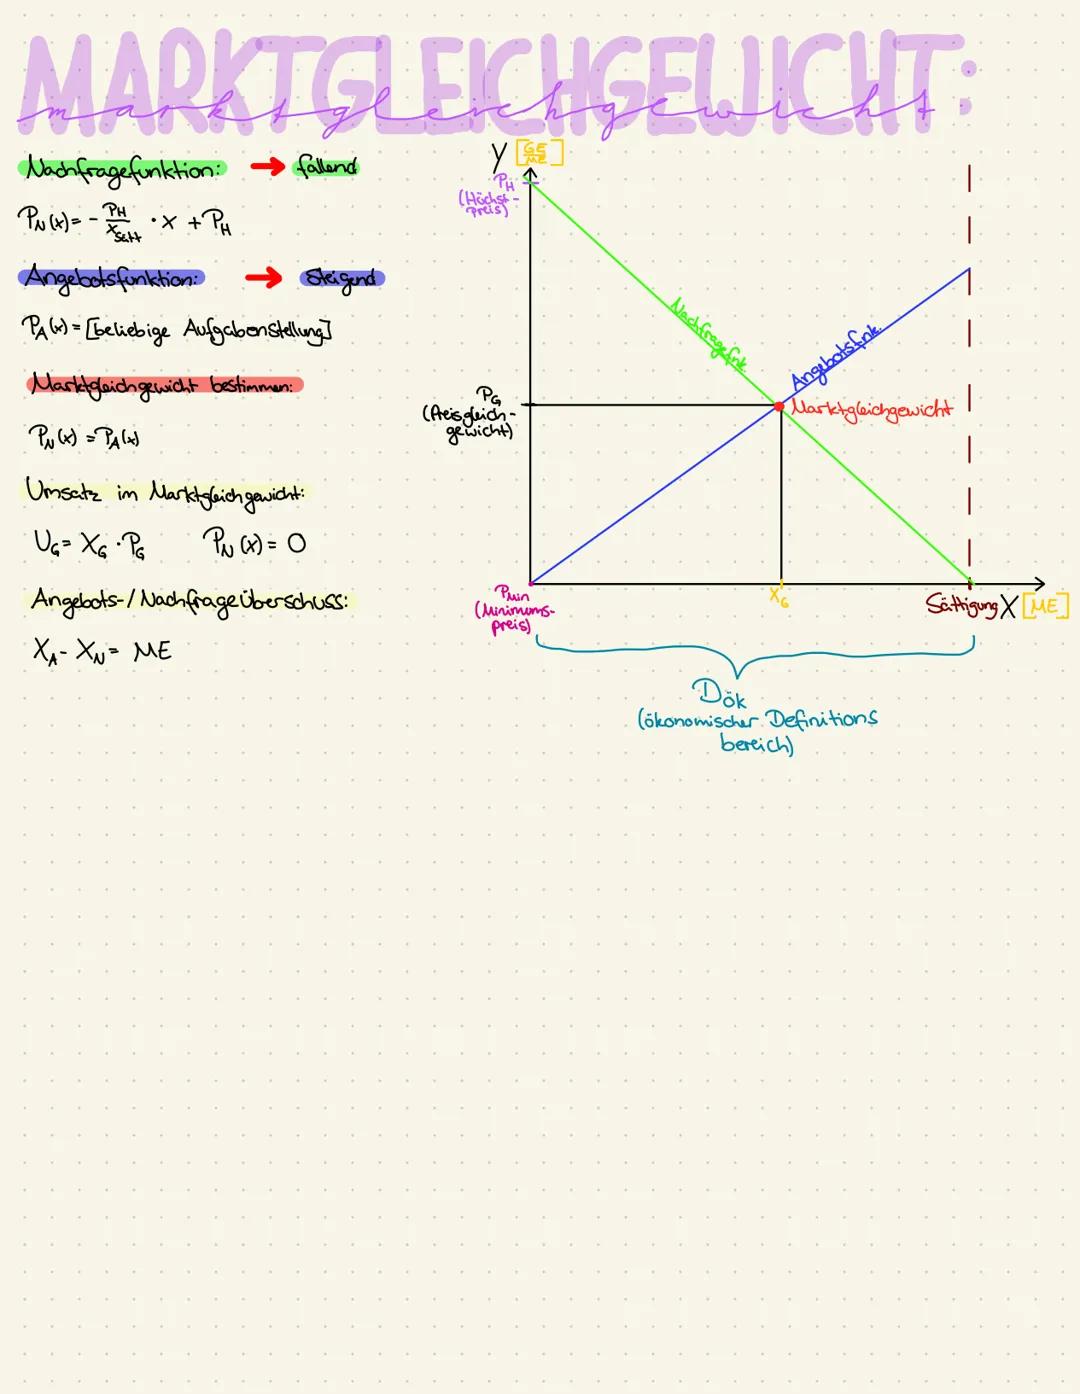 MARKTGLEICHGEWICHT:
marktgleichgewicht
Nachfragefunktion: → fallend
P_N(x) = - P_H/x_Sätt · x + P_H
Angebotsfunktion: → steigend
P_A(x) = [beliebige Aufgabenstellung]
Marktgleichgewicht bestimmen:
P_N(x) = P_A(x)
Umsatz im Marktgleichgewicht:
U_G = X_G · P_G P_N(x) = 0
Angebots-/Nachfrageüberschuss:
X_A - X_N = ME
Y [GE/ME]
P_H
(Höchst-
preis)
Nachfragefnk.
Angebotsfnk.
P_G
(Preisgleich-
gewicht)
Marktgleichgewicht
P_Min
(Minimums-
preis)
X_G
Sättigung X [ME]
D_ök
(ökonomischer Definitions
bereich)